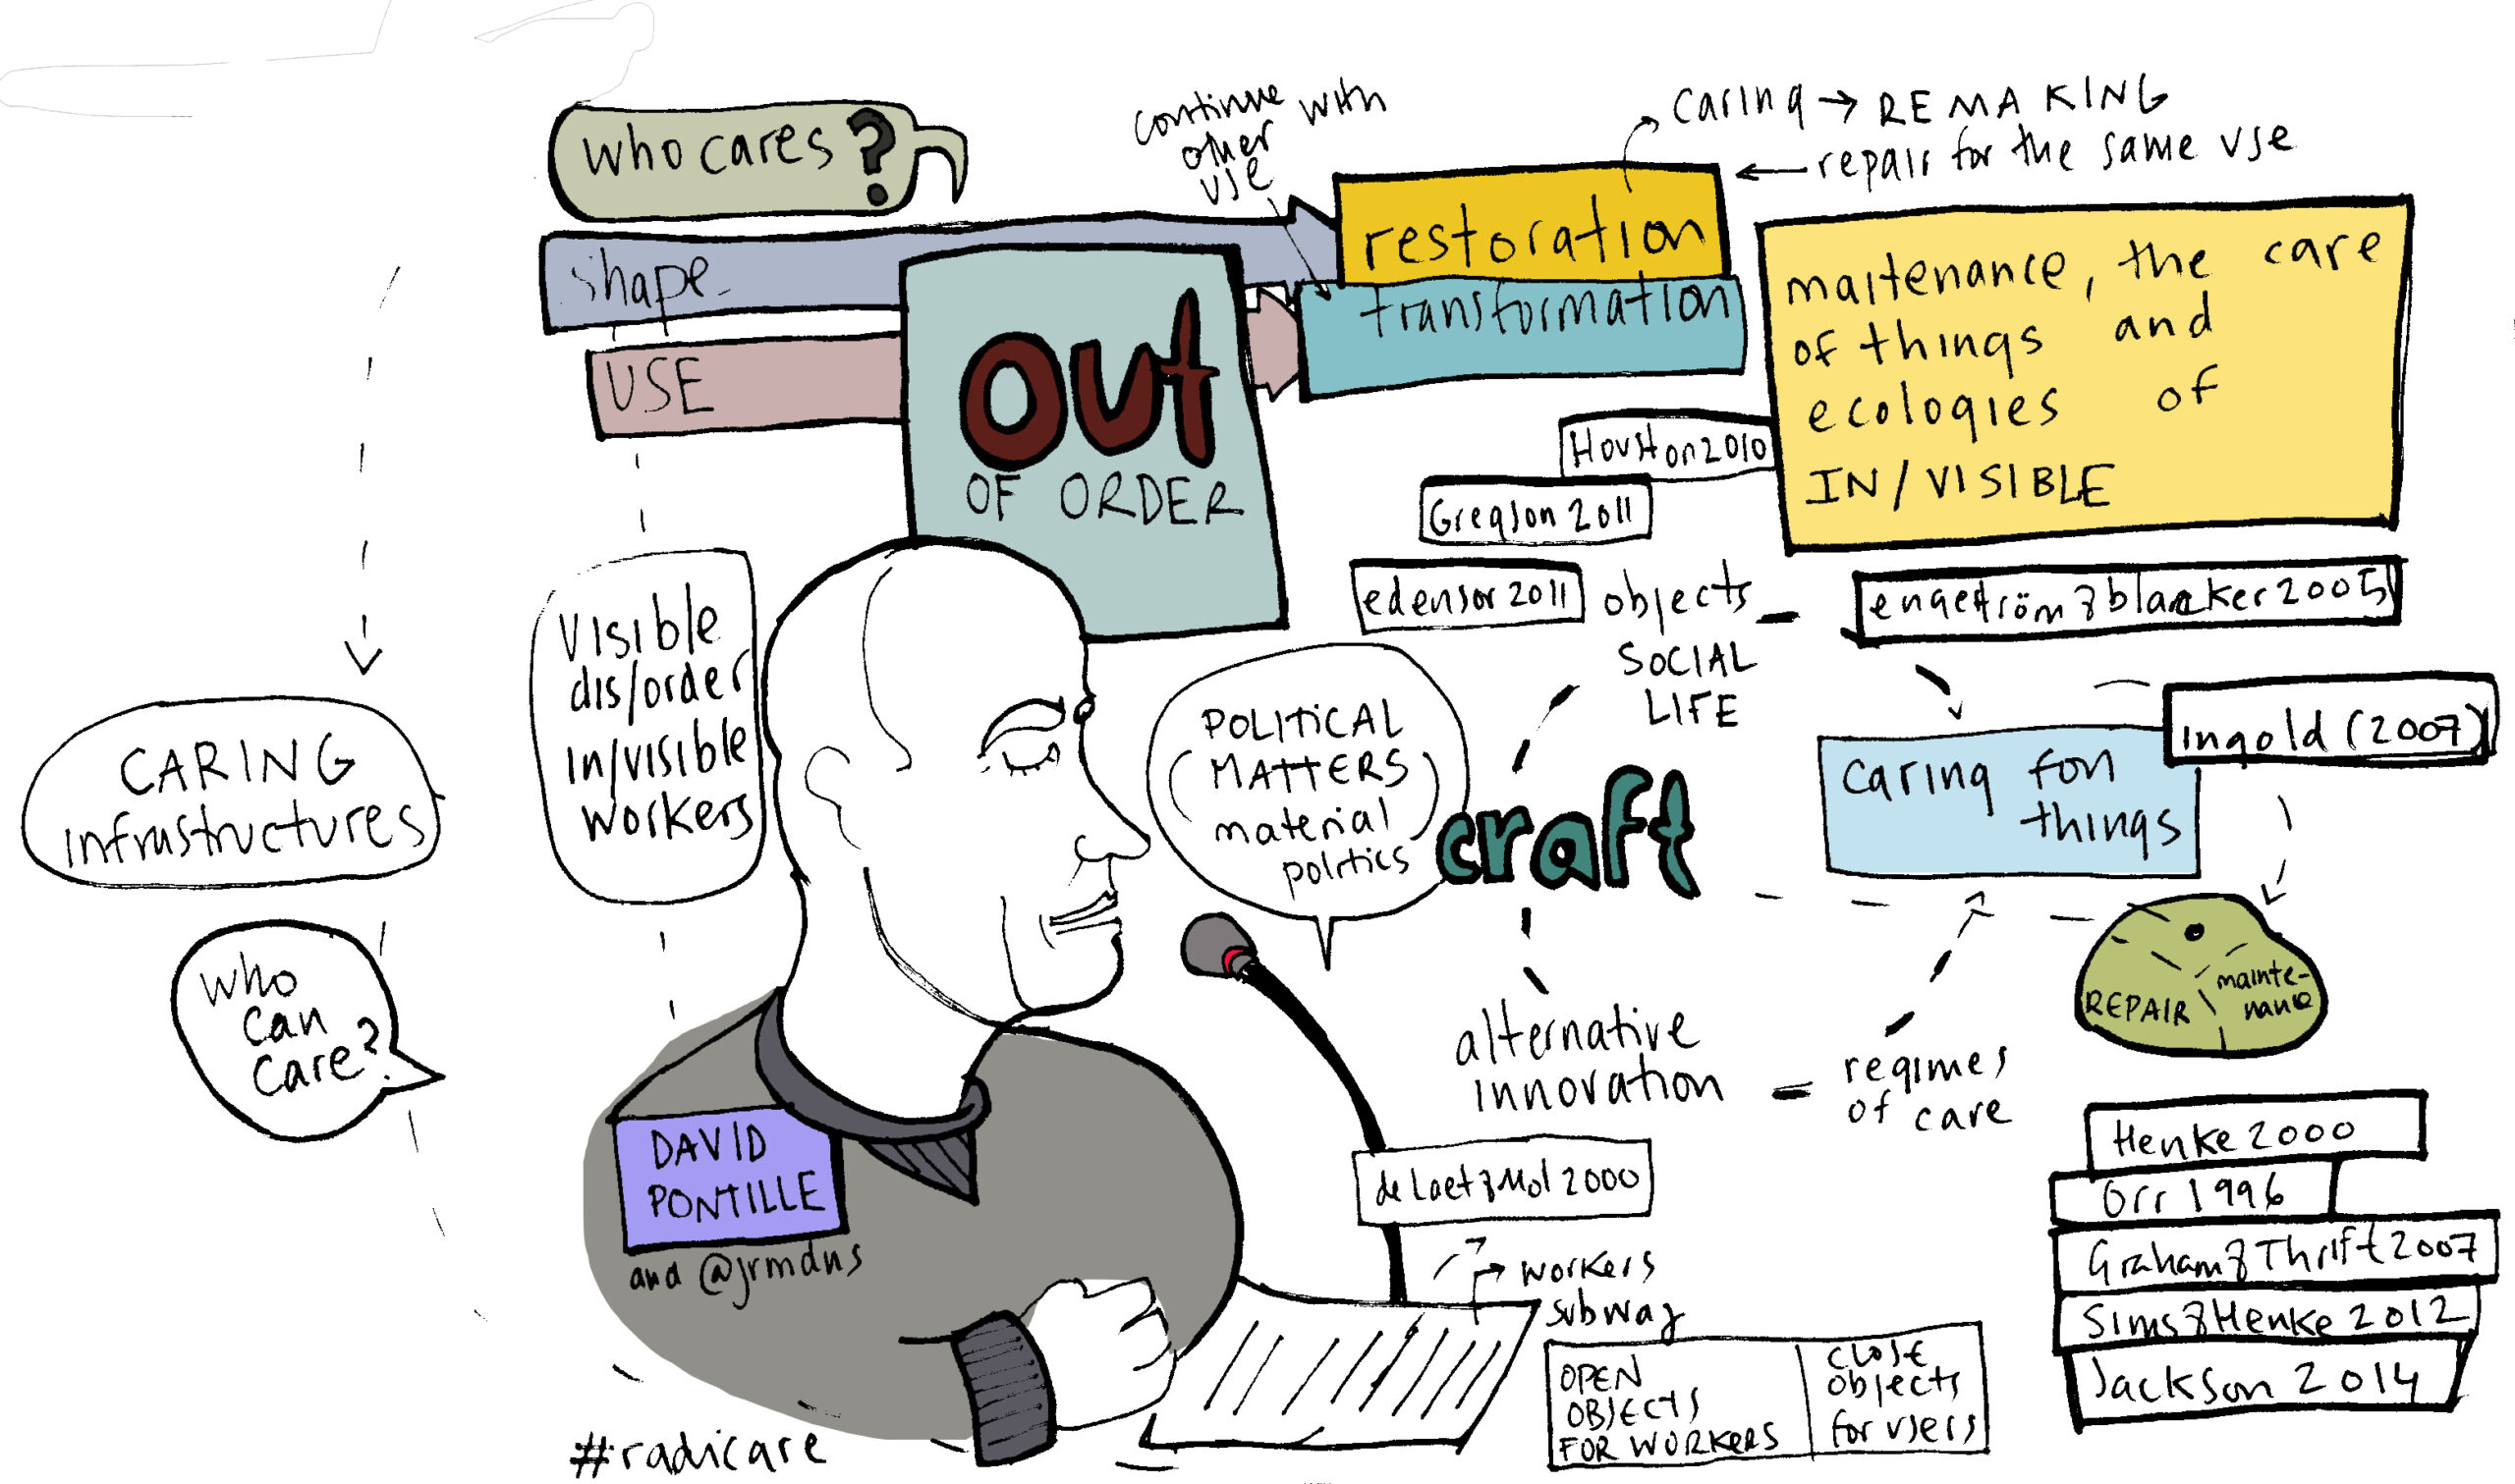 who cares?
continue with
other
use
caring → REMAKING
← repair for the same use
shape
USE
OUT
OF ORDER
restoration
transformation
maitenance, the care
of things and
ecologies of
IN/VISIBLE
Houston 2010
Gregson 2011
edensor 2011
objects
SOCIAL
LIFE
engeström & blacker 2005
Ingold (2007)
caring fon
things
CARING
infrastructures
Visible
dis/order
in/visible
workers
POLITICAL
MATTERS
material
politics
craft
who
can
care?
REPAIR
mainte-
nance
alternative
innovation
regimes
of care
DAVID
PONTILLE
and @jrmdns
de Laet & Mol 2000
workers
subway
OPEN
OBJECTS
FOR WORKERS
CLOSE
objects
for users
Henke 2000
Orr 1996
Graham & Thrift 2007
Sims & Henke 2012
Jackson 2014
#radicare